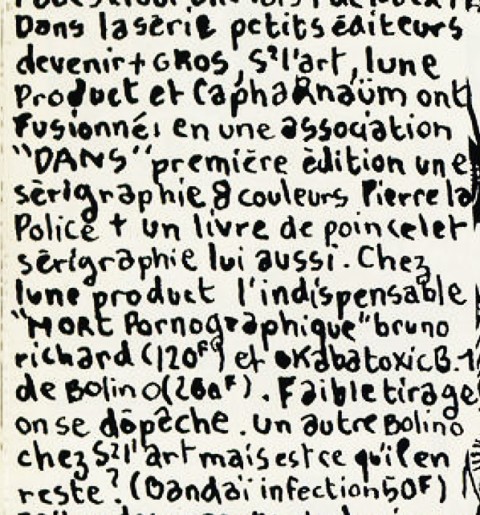 Dans la série petits éditeurs
devenir + GROS, S2l'art, lune
Product et CaphaRnaüm ont
fusionnés en une association
"DANS" première édition une
sérigraphie 8 couleurs Pierre la
Police + un livre de poincelet
sérigraphie lui aussi. Chez
lune product l'indispensable
"MORT Pornographique" bruno
richard (120F) et Kabatoxic B.1
de Bolino (260F). Faible tirage
on se dépêche. un autre Bolino
chez S2l'art mais est ce qu'il en
reste? (Bandaï infection 50F)